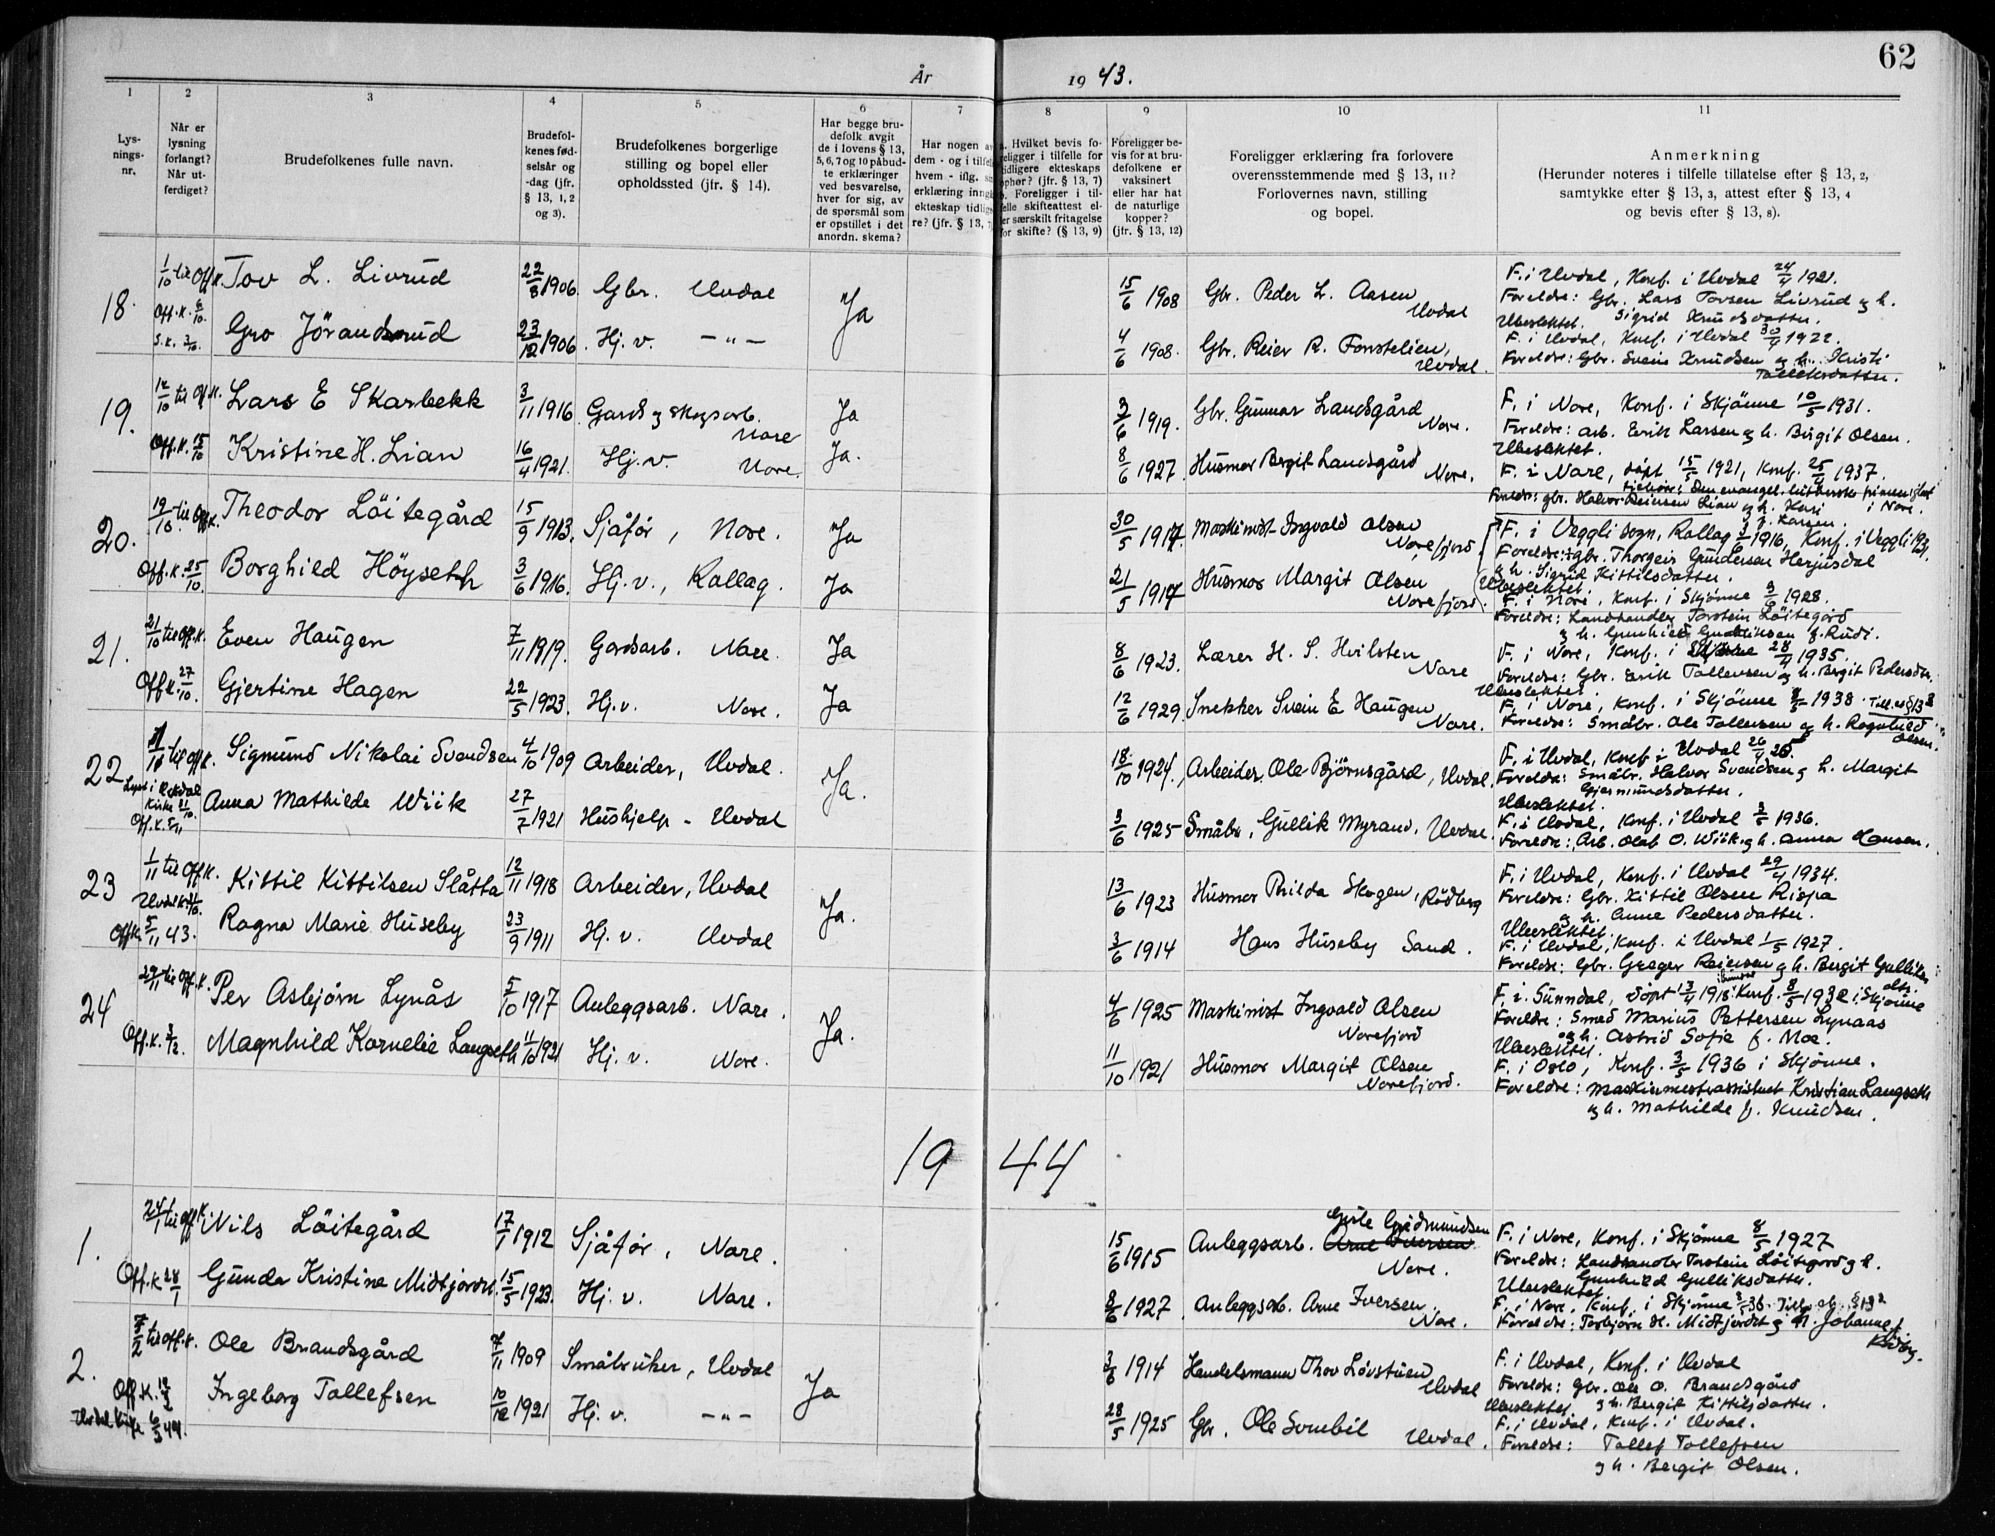 62
År 1943.
1 2 3 4 5 6 7 8 9 10 11
Lys-
nings-
nr.
Når er
lysning
forlangt?
Når ut-
ferdiget?
Brudefolkenes fulle navn.
Brudefol-
kenes fød-
selsår og
-dag (jfr.
§ 13, 1, 2
og 3).
Brudefolkenes borgerlige
stilling og bopel eller
opholdssted (jfr. § 14).
Har begge bru-
defolk avgit
de i lovens § 13,
5, 6, 7 og 10 påbud-
te erklæringer
ved besvarelse,
hver for sig, av
de spørsmål som
er opstillet i det
anordn. skema?
Har nogen av
dem - og i tilfelle
hvem - iflg. sin
erklæring inngått
ekteskap tidlige-
re? (jfr. § 13, 7)
a. Hvilket bevis fo-
religger i tilfelle for
tidligere ekteskaps
ophør? (jfr. § 13, 7)
b. Foreligger i til-
felle skifteattest el-
ler særskilt fritagelse
for skifte? (§ 13, 9)
Foreligger be-
vis for at bru-
defolkene er
vaksinert
eller har hat
de naturlige
kopper?
(jfr. § 13, 12)
Foreligger erklæring fra forlovere
overensstemmende med § 13, 11?
Forlovernes navn, stilling
og bopel.
Anmerkning
(Herunder noteres i tilfelle tillatelse efter § 13, 2,
samtykke efter § 13, 3, attest efter § 13, 4
og bevis efter § 13, 8).
18. 1/10 til Off.k. Tov L. Livrud 22/8 1906. Gbr. Uvdal Ja 15/6 1908 Gbr. Peder L. Aasen Uvdal
F. i Uvdal, Konf. i Uvdal 24/4 1921.
Foreldre: Gbr. Lars Torsen Livrud og h.
Sigrid Knudsdatter.
Ubeslektet.
Off.k. 6/10. S.k. 3/10. Gro Jörandsrud 23/12 1906. Hj. v. -"- 4/6 1908. Gbr. Reier R. Fonstelien, Uvdal.
F. i Uvdal, Konf. i Uvdal 30/4 1922.
Foreldre: Gbr. Svein Knudsen og h. Kristi
Tollefsdatter.
19. 12/10 til Off.k. Lars E Skarbekk 3/11 1916. Gards og skogsarb. Nore Ja 3/6 1919. Gbr. Gunnar Landsgård Nore.
F. i Nore, Konf. i Skjönne 10/5 1931.
Foreldre: Arb. Erik Larsen og h. Birgit Olsen.
Ubeslektet.
Off.k. 15/10 Kristine H. Lian 16/4 1921. Hj. v. Nore. Ja. 8/6 1927 Husmor Bergit Landsgård Nore.
F. i Nore, döpt 15/5 1921, Konf. 25/4 1937.
i Nore.
Foreldre: gbr. Halvor Reiersen Lian og h. Kari
f. Karsen.
20. 19/10 til Off.k. Theodor Löitegård 15/9 1913. Sjåför, Nore. Ja 30/5 1917. Maskinist Ingvald Olsen Norefjord
F. i Veggli sogn, Rollag 3/6 1916, Konf. i Veggli 1931.
Foreldre: gbr. Thorgeir Gundersen Herjusdal
og h. Sigrid Kittilsdatter.
Ubeslektet.
Off.k. 25/10. Borghild Höyseth 3/6 1916. Hj. v., Rollag. Ja 21/5 1917 Husmor Margit Olsen Norefjord.
F. i Nore, Konf. i Skjönne 3/6 1928.
Foreldre: Landhandler Torstein Löitegård
og h. Gunhild Gulliksen f. Rudi.
21. 21/10 til Off.k. Even Haugen 7/11 1919. Gardsarb. Nore. Ja 8/6 1923. Lærer H. S. Hvilsten Nore
F. i Nore, Konf. i Skjönne 28/4 1935.
Foreldre: Gbr. Erik Tollevsen og h. Bergit Pedersdtr.
Ubeslektet.
Off.k. 27/10. Gjertine Hagen 22/5 1923. Hj. v. Nore. Ja 12/6 1929 Snekker Svein E Haugen Nore.
F. i Nore, Konf. i Skjönne 8/5 1938. Till. eft. § 13 2
Foreldre: Småbr. Ole Tollevsen og h. Ragnhild
Olsen.
22 til Off.k. Sigmund Nikolai Svendsen 4/10 1909 Arbeider, Uvdal. Ja. 18/10 1924. Arbeider, Ole Björnsgård, Uvdal.
F. i Uvdal, Konf i Uvdal 26/4 25
Foreldre: Småbr. Halvor Svendsen og h. Margit
Gjermundsdatter.
Ubeslektet.
Kirke 31/10.
Off.k. 5/11 Anna Mathilde Wiik 27/7 1921 Hushjelp - Uvdal 3/6 1925 Småbr, Gullik Myrand, Uvdal.
F. i Uvdal, Konf. i Uvdal 3/5 1936.
Foreldre: Arb. Olaf O. Wiik og h. Anna Hansen.
23 1/11 til Off.k. Kittil Kittilsen Slåtta 12/11 1918 Arbeider, Uvdal Ja. 13/6 1923 Husmor Thilda Skogen, Rödberg
F. i Uvdal, Konf. i Uvdal 29/4 1934.
Foreldre: Gbr. Kittil Olsen Risja
og h. Anne Pedersdatter.
Ubeslektet.
Off.k. 5/11 43. Ragna Marie Huseby 23/9 1911 Hj. v. Uvdal 3/6 1914 Hans Huseby Sand.
F. i Uvdal, Konf. i Uvdal 1/5 1927.
Foreldre: Gbr. Greger Reiersen og h. Bergit Gulliks-
dtr.
24 29/11 til Off.k. Per Asbjørn Lynås 5/10 1917 Anleggsarb. Nore. Ja. 4/6 1925 Maskinist Ingvald Olsen Norefjord
F. i Sunndal, döpt 13/4 1918. Konf. 8/5 1932 i Skjönne
Foreldre: Smed Marius Pettersen Lynaas
og h. Astrid Sofie f. Moe.
Ubeslektet.
Off.k. 3/12. Magnhild Kornelie Langseth 11/10 1921 Hj. v. Nore. 11/10 1921 Husmor Margit Olsen Norefjord.
F. i Oslo, Konf. 3/5 1936 i Skjönne.
Foreldre: Maskinmesterassistent Kristian Langseth
og h. Mathilde f. Knudsen.
19 44
1. 24/1 til Off.k. Nils Löitegård 17/1 1912 Sjåför, Nore. 15/6 1915 Anleggsarb. Gisle Gudmundsen Arne Iversen Nore.
F. i Nore, Konf. i Skjönne 8/5 1927
Foreldre: Landhandler Torstein Löitegård og h.
Gunhild Gulliksdatter.
Ubeslektet.
Off.k 28/1 Gunda Kristine Midtjordet. 15/5 1923. Hj. v. Nore. 8/6 1927 Anleggsarb. Arne Iversen. Nore.
F. i Nore, Konf. i Skjönne 3/5 38. Till. eft. § 13 2
Foreldre: Torbjörn H. Midtjordet og h. Johanne f.
2. 7/2 til Off.k. Ole Brandsgård 7/11 1909 Småbruker, Uvdal Ja 3/6 1914 Handelsmann Thov Lövstuen Uvdal
F. i Uvdal, Konf. i Uvdal
Foreldre: Gbr. Ole O. Brandsgård
og h. Bergit Kittilsdatter.
Ubeslektet
Off.k.
Uvdal Kirke 6/3 44. Ingeborg Tollefsen 10/12 1921 Hj. v. -"- 28/5 1925 Gbr. Ole Sonebil Uvdal.
F. i Uvdal, Konf. i Uvdal.
Foreldre: Tollef Tollefsen
og h. Bergit Olsen.